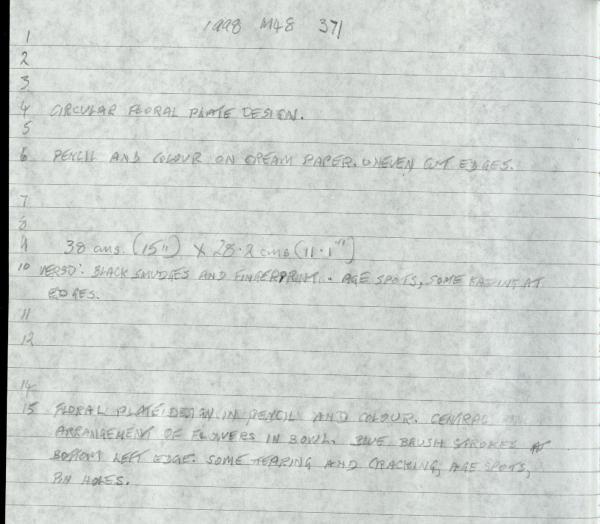 1998 M48 371
1
2
3
4 CIRCULAR FLORAL PLATE DESIGN.
5
6 PENCIL AND COLOUR ON CREAM PAPER. UNEVEN CUT EDGES.
7
8
9 38 cms. (15") X 28.2 cms (11.1")
10 VERSO: BLACK SMUDGES AND FINGERPRINT. AGE SPOTS, SOME AT
EDGES.
11
12
14
15 FLORAL PLATE DESIGN IN PENCIL AND COLOUR. CENTRAL
ARRANGEMENT OF FLOWERS IN BOWL. BLUE BRUSH STROKES AT
BOTTOM LEFT EDGE. SOME TEARING AND CRACKING, AGE SPOTS,
PIN HOLES.